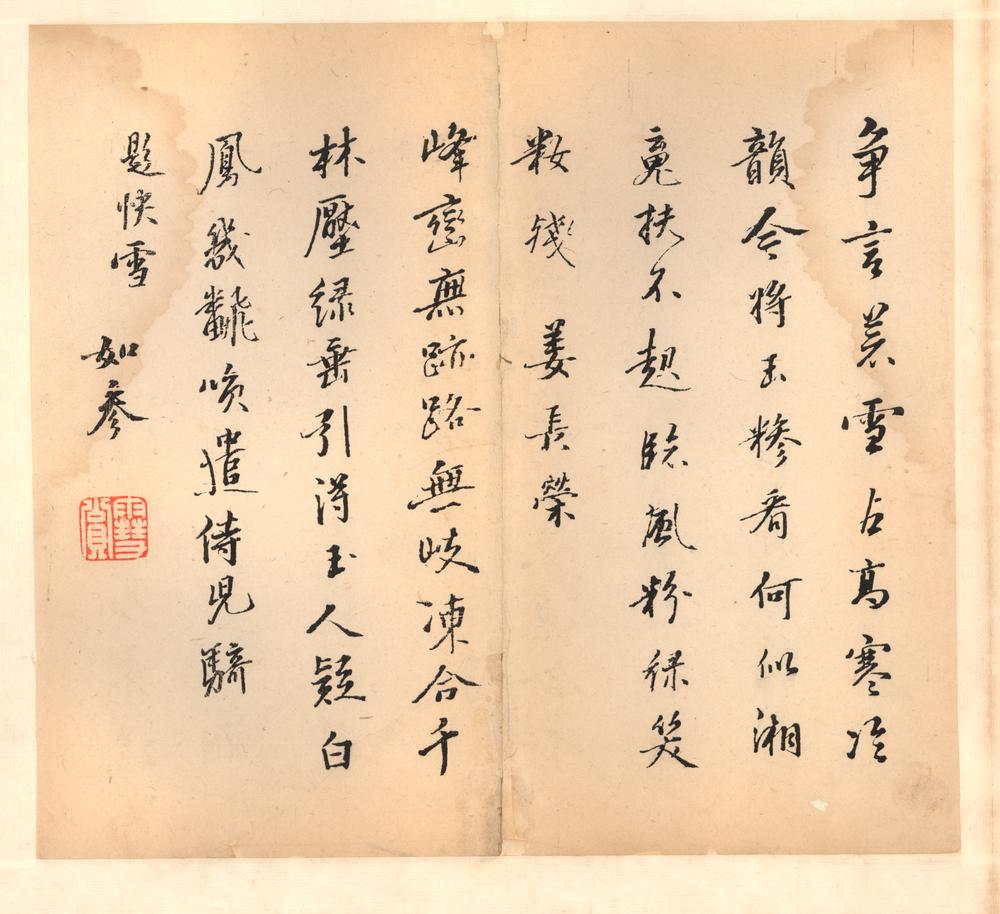 爭言雪占高寒冷
韻今將玉糝看何似湘
魂扶不起臨風粉綠笑
粧殘 姜長榮
峰巒無跡路無岐凍合千
林壓綠垂引得玉人疑白
鳳幾飜嗔遣侍兒騎
題快雪 如參